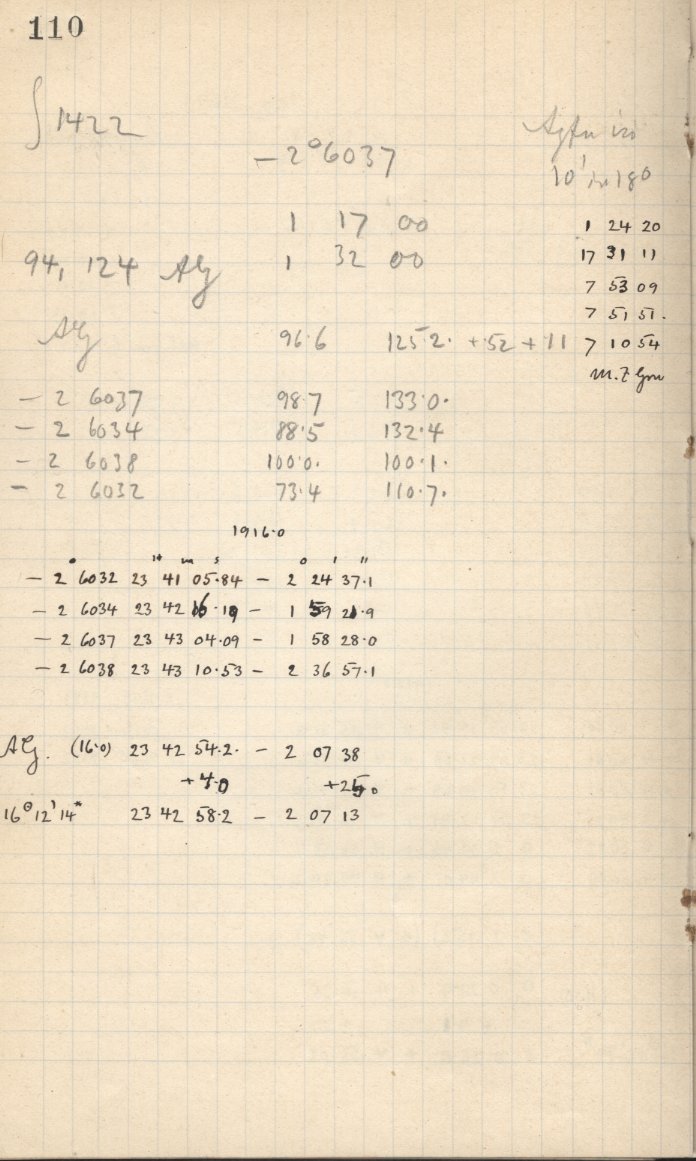 110
∫ 1422
− 2° 6037
10' in 180
1 17 00
1 24 20
94, 124 AG 1 32 00
17 31 11
7 53 09
7 51 51.
AG 96·6 125·2. +52 +11
7 10 54
− 2 6037 98·7 133·0·
− 2 6034 88·5 132·4
− 2 6038 100·0. 100·1.
− 2 6032 73·4 110·7.
1916·0
° H m s ° ' "
− 2 6032 23 41 05·84 − 2 24 37·1
− 2 6034 23 42 16·19 − 1 59 21·9
− 2 6037 23 43 04·09 − 1 58 28·0
− 2 6038 23 43 10·53 − 2 36 57·1
AG. (16·0) 23 42 54·2. − 2 07 38
+4·0 +25.
16° 12' 14" 23 42 58·2 − 2 07 13